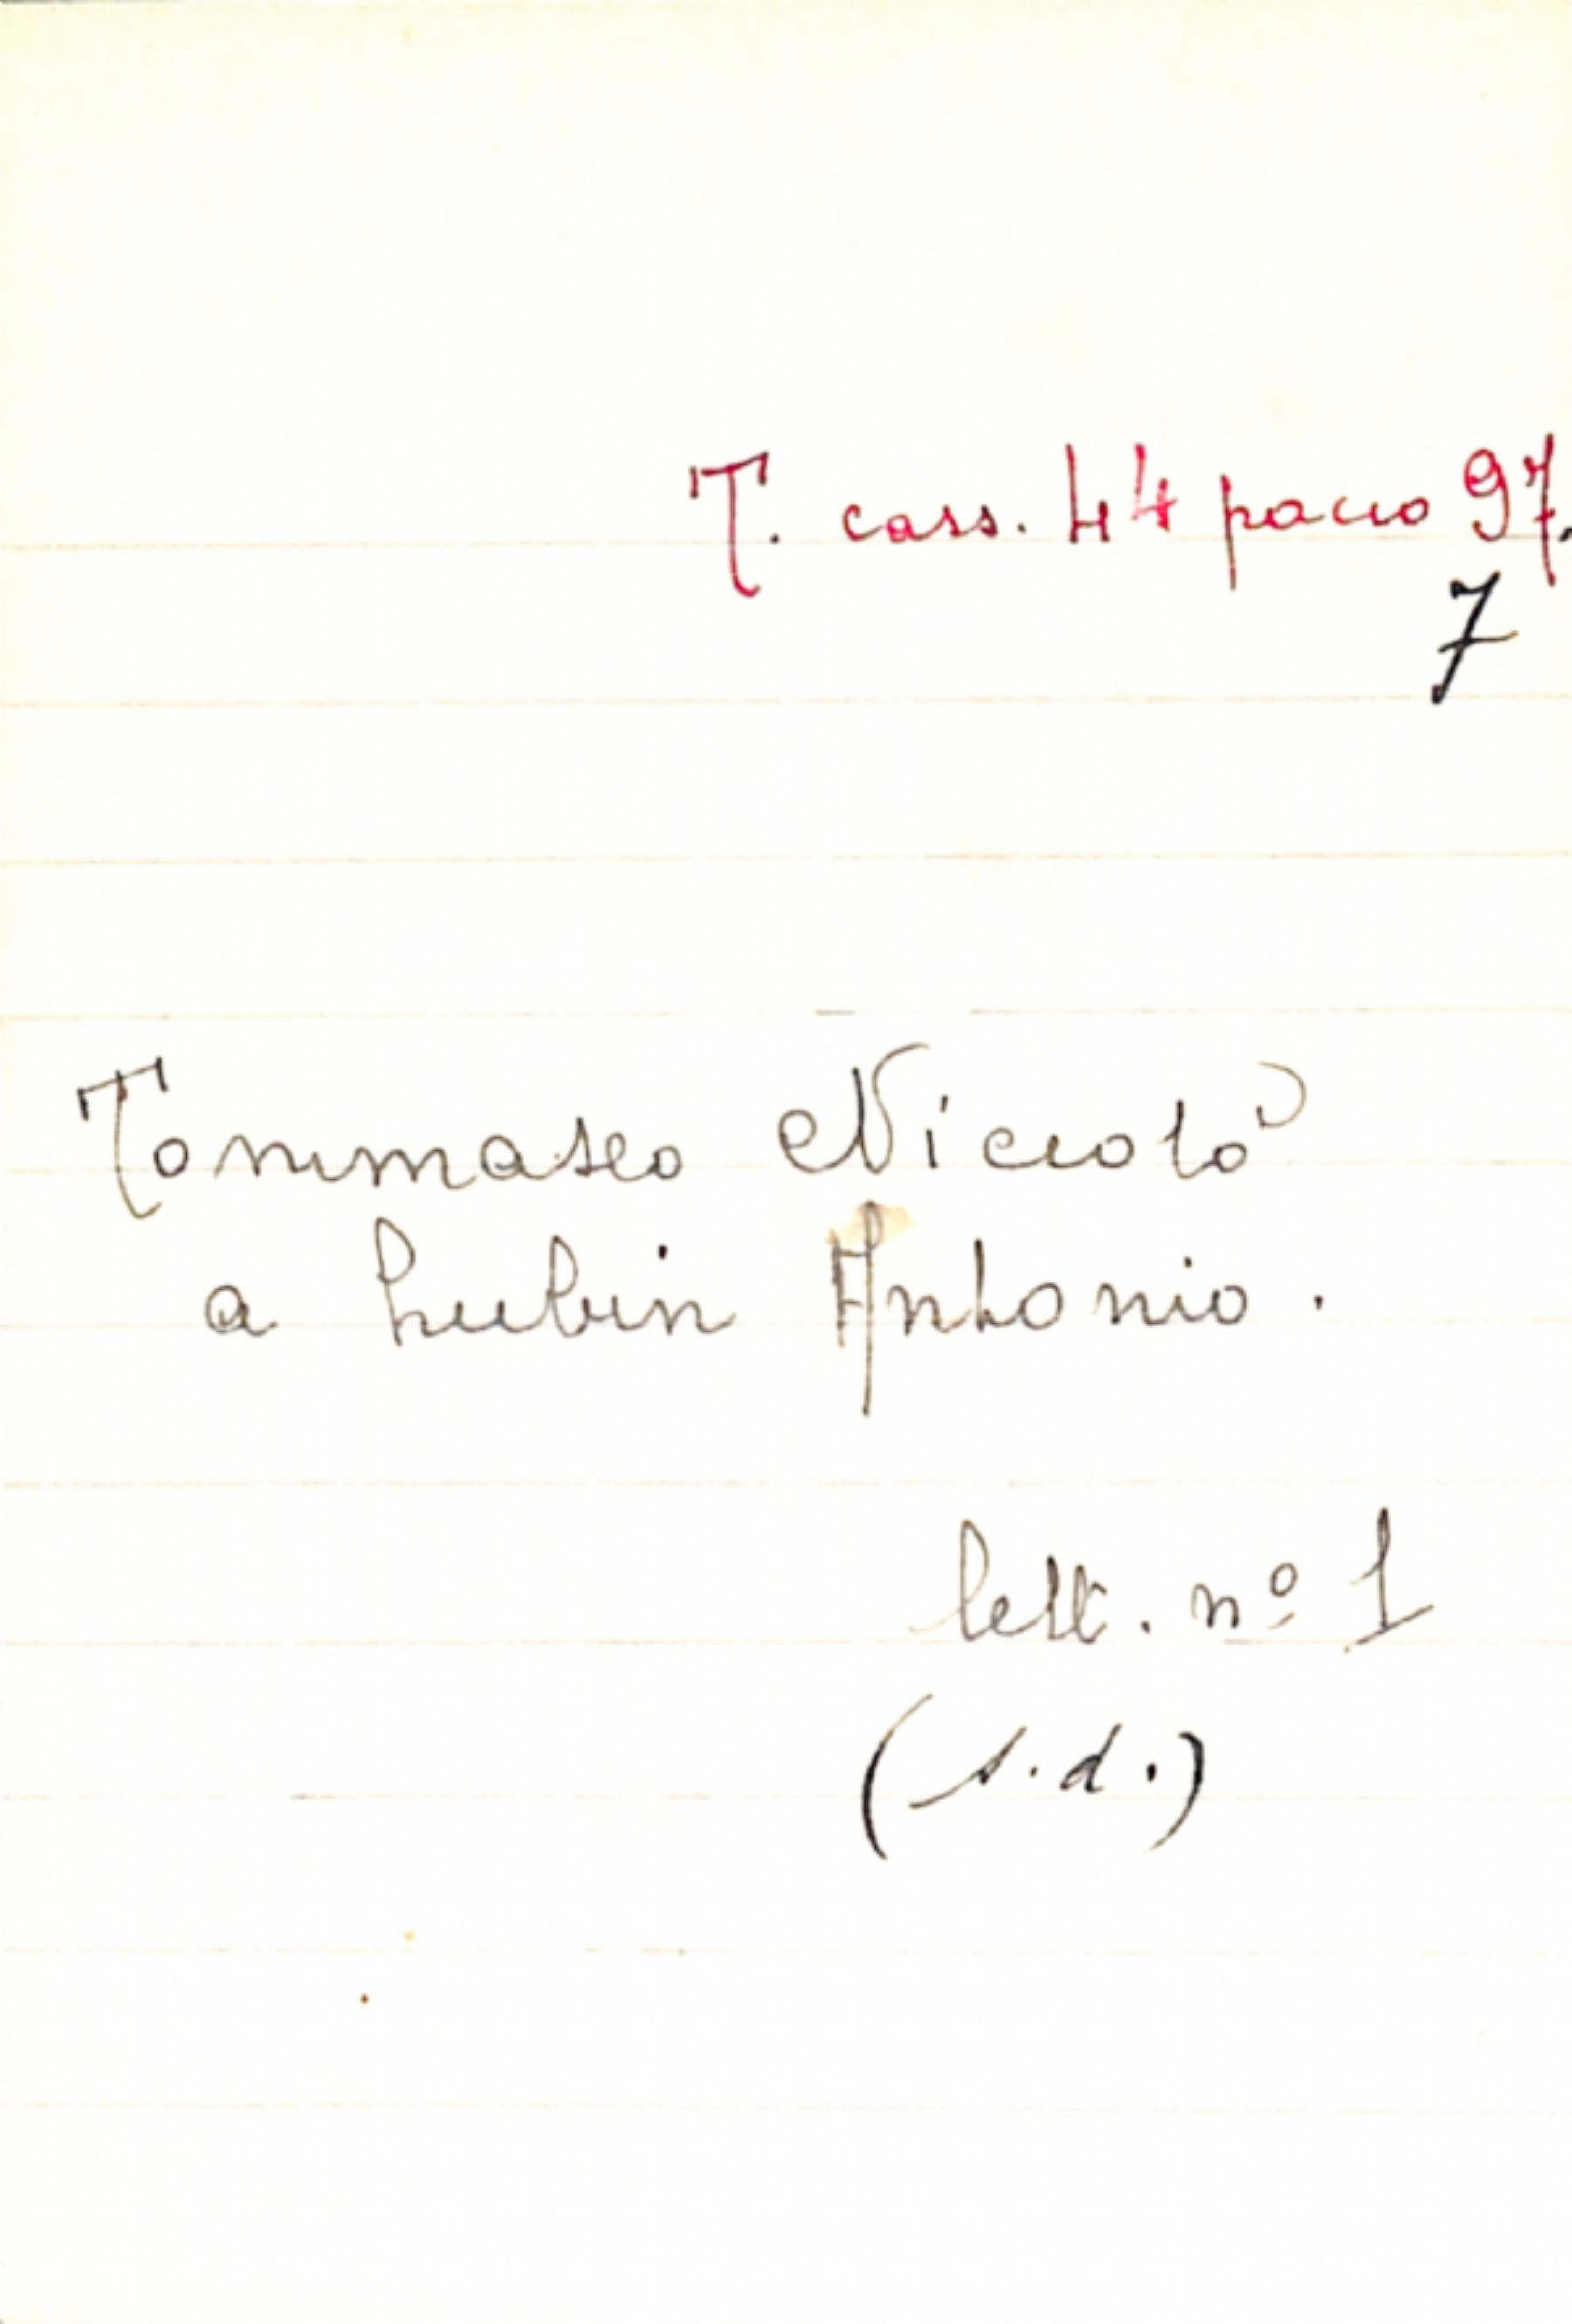 T. cass. 44 pacco 97.
7
Tommaseo Niccolò
a Lubin Antonio.
lett. nº 1
(s.d.)